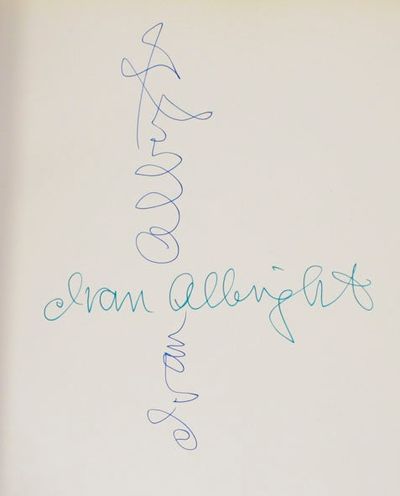 Ivan Albright
Ivan Albright